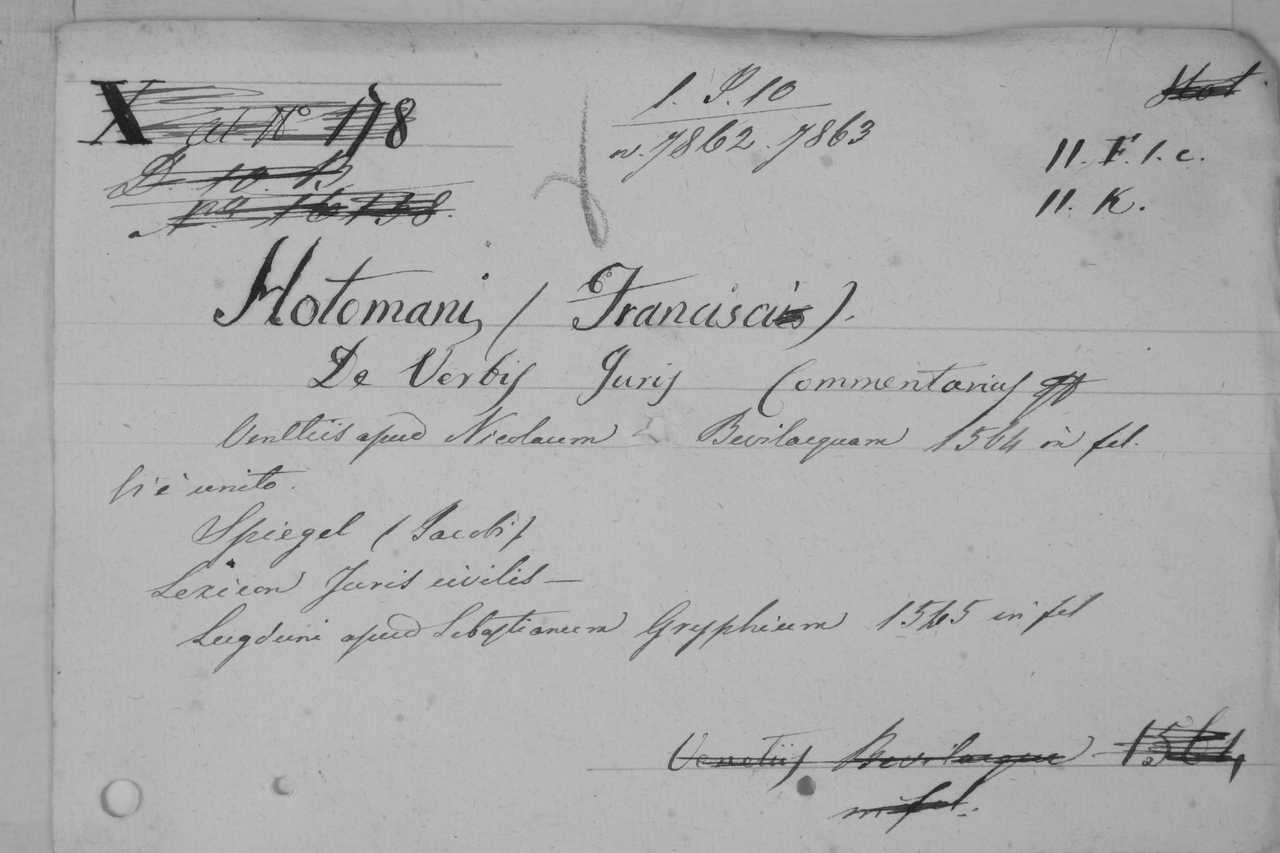 X at N° 178
D. 10. 13
1. P. 10
n. 7862. 7863
Hot.
11. F. 1. c.
11. K.
Hotomani (Francisci).
De Verbis Juris Commentarius
Venetiis apud Nicolaum Bevilacquam 1564 in fol.
Vi è unito.
Spiegel (Jacobi)
Lexicon Juris civilis —
Lugduni apud Sebastianum Gryphium 1545 in fol
Venetiis Bevilacque 1564,
in fol.